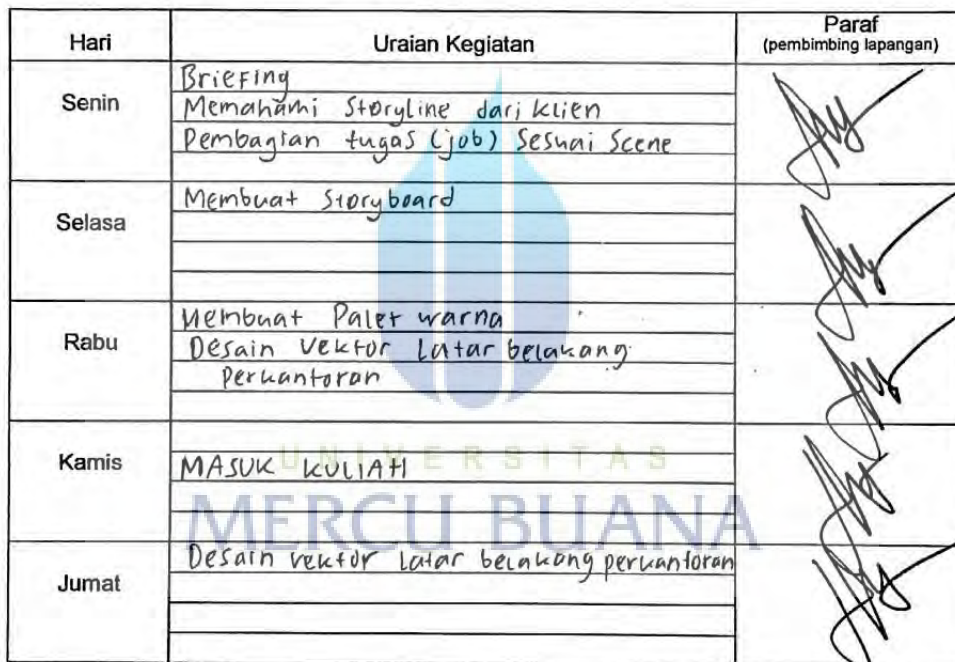 Hari Uraian Kegiatan Paraf
(pembimbing lapangan)
Senin
Briefing
Memahami Storyline dari klien
Pembagian tugas (job) Sesuai Scene
Selasa
Membuat Storyboard
Rabu
Membuat Palet warna
Desain Vektor Latar belakang
Perkantoran
Kamis
MASUK KULIAH
UNIVERSITAS
MERCU BUANA
Jumat
Desain vektor Latar belakang perkantoran